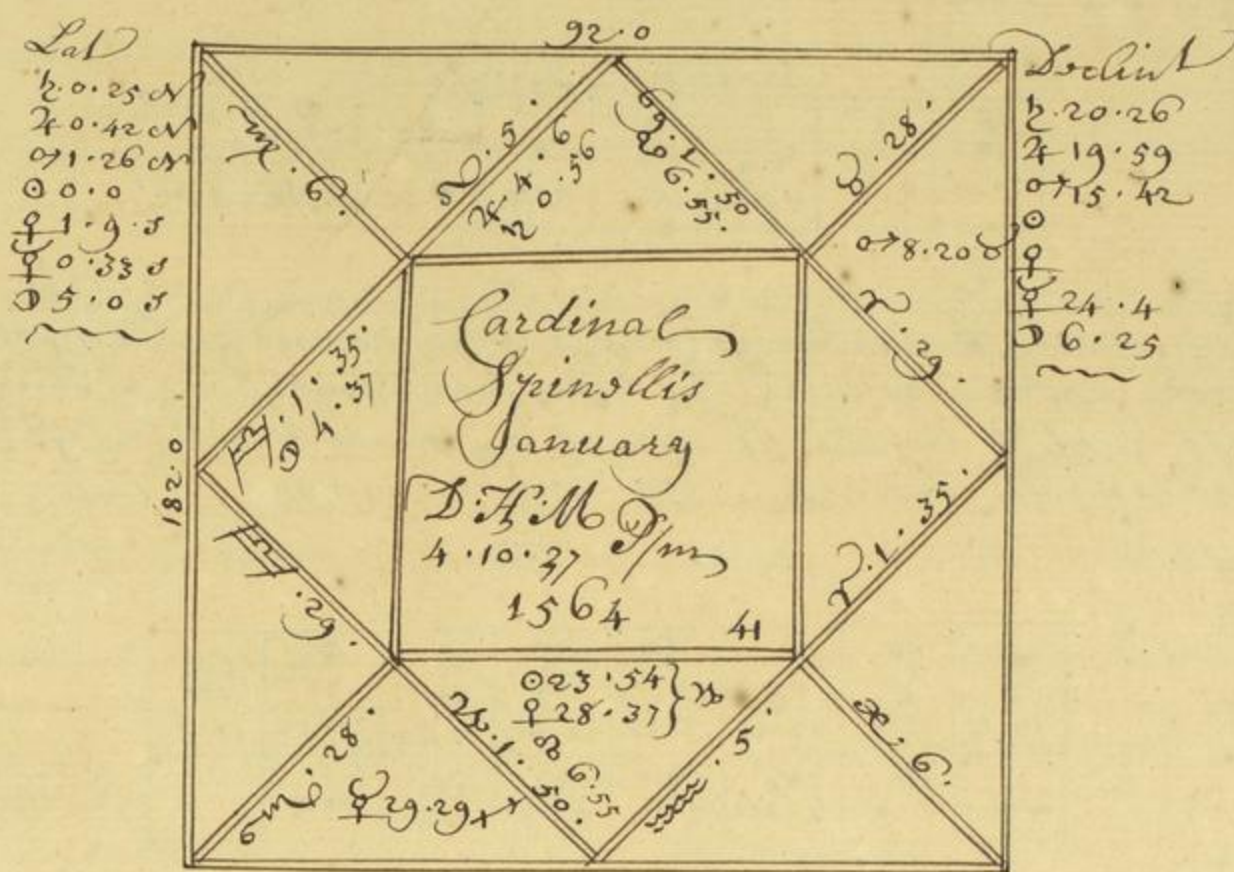 92.0
Lat
♄ 0.25 N
♃ 0.42 N
♂ 1.26 N
☉ 0.0
♀ 1.9 S
☿ 0.33 S
☽ 5.0 S
Declint
♄ 20.26
♃ 19.59
♂ 15.42
☉
♀
☿ 24.4
☽ 6.25
♍.6.
♌.5.
♃ 4.6
♄ 0.56
♋.1.50
☋ 6.55.
♉.28.
♂ 8.20 ♉
♈.29.
182.0
♎.1.35.
☽ 4.37
Cardinal
Spinellis
January
D:H:M P/m
4.10.27
1564
41
♈.1.35.
♎.29.
♏.28.
☿ 29.29 ♐
♑.1.50.
☉ 23.54 } ♑
♀ 28.37
☊ 6.55
♒.5.
♓.6.